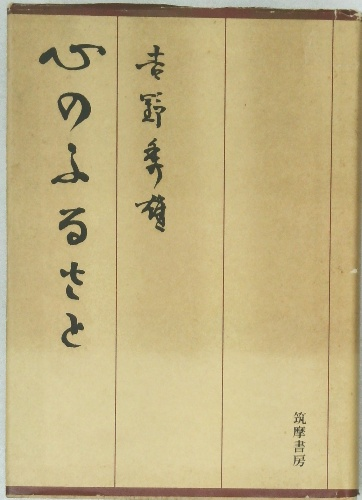 吉野秀雄
心のふるさと
筑摩書房